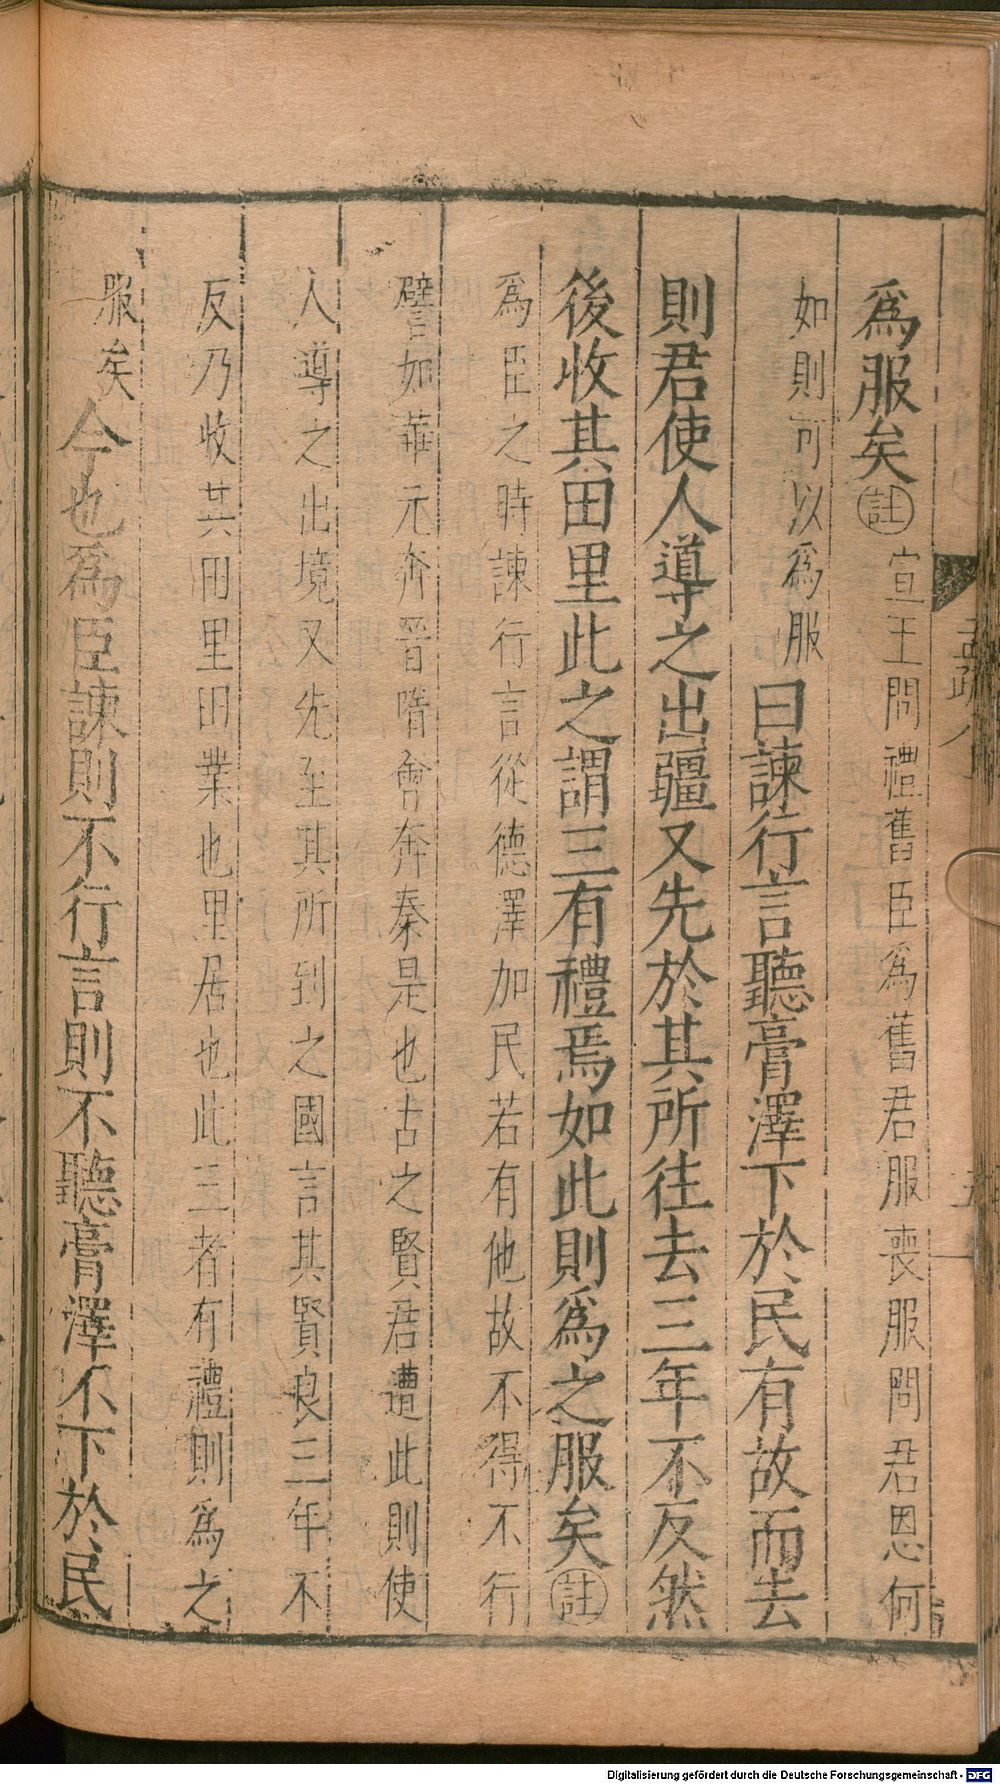 為服矣㊟宣王問禮舊臣為舊君服喪服問君恩何
如則可以為服曰諫行言聽膏澤下於民有故而去
則君使人導之出疆又先於其所往去三年不反然
後收其田里此之謂三有禮焉如此則為之服矣㊟
為臣之時諫行言從德澤加民若有他故不得不行
譬如華元奔晉隋會奔秦是也古之賢君遭此則使
人導之出境又先至其所到之國言其賢良三年不
反乃收其田里田業也里居也此三者有禮則為之
服矣今也為臣諫則不行言則不聽膏澤不下於民
Digitalisierung gefördert durch die Deutsche Forschungsgemeinschaft - DFG